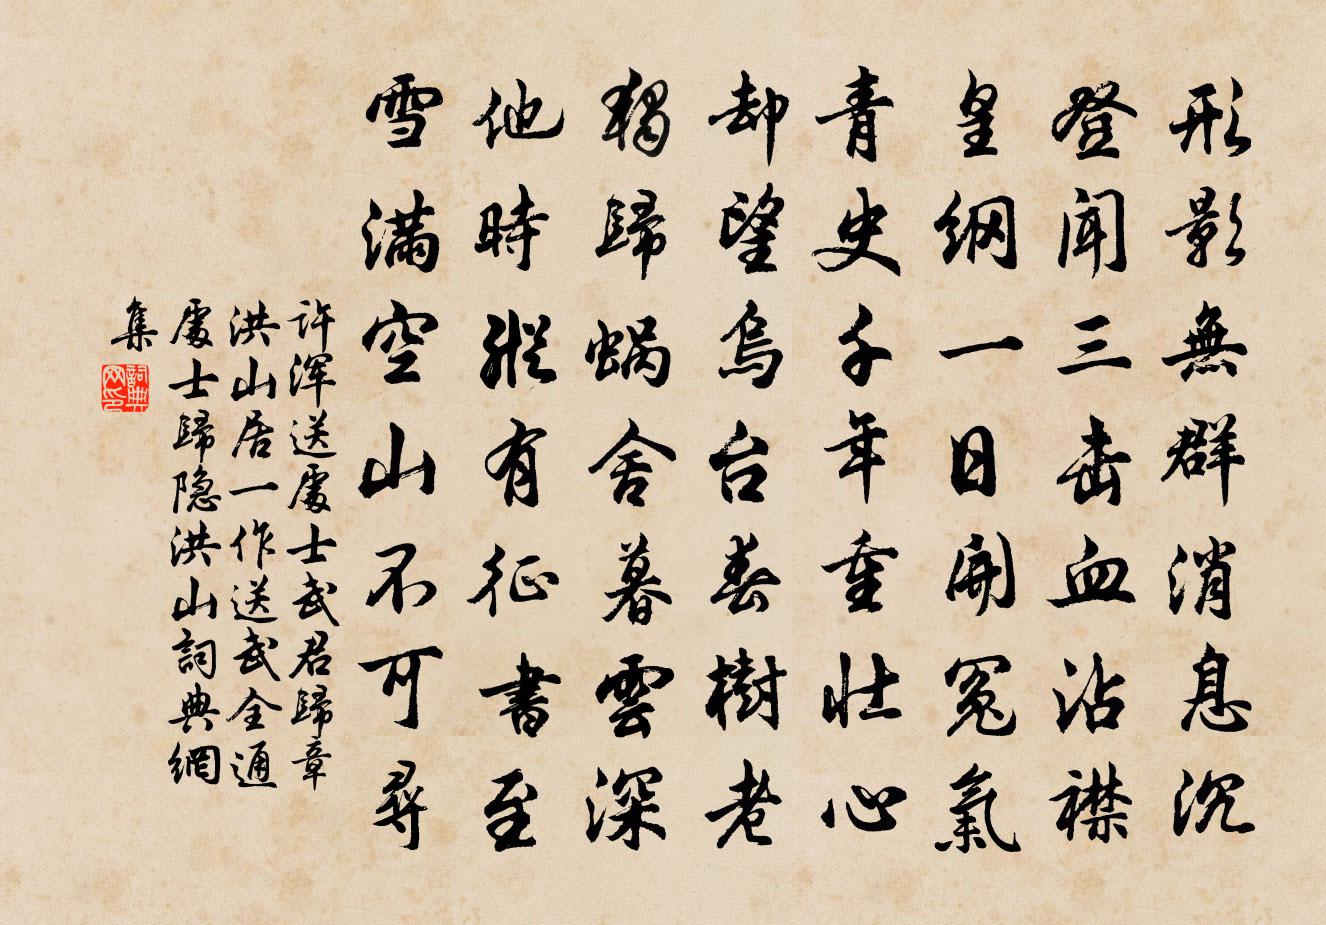 形影無群消息沉
登聞三击血沾襟
皇纲一日開冤氣
青史千年重壮心
却望烏台春樹老
獨歸蜗舍暮雲深
他時縱有征書至
雪满空山不可尋
許浑送處士武君歸章
洪山居一作送武全通
處士歸隐洪山詞典網
集
詞典网印